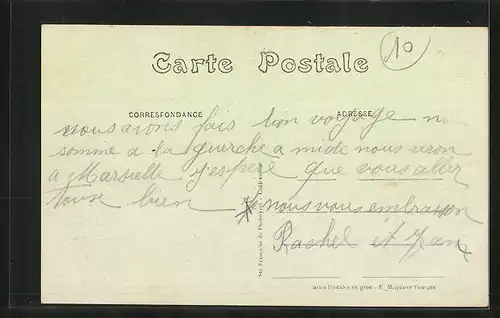 10
Carte Postale
CORRESPONDANCE
ADRESSE
nous avons fais bon voyage
somme a la guerche a midi nous seron
a Marseille j'espere que vous aller
tous bien nous vous embrason
Rachel et Jean
Sté Française de Phototypie